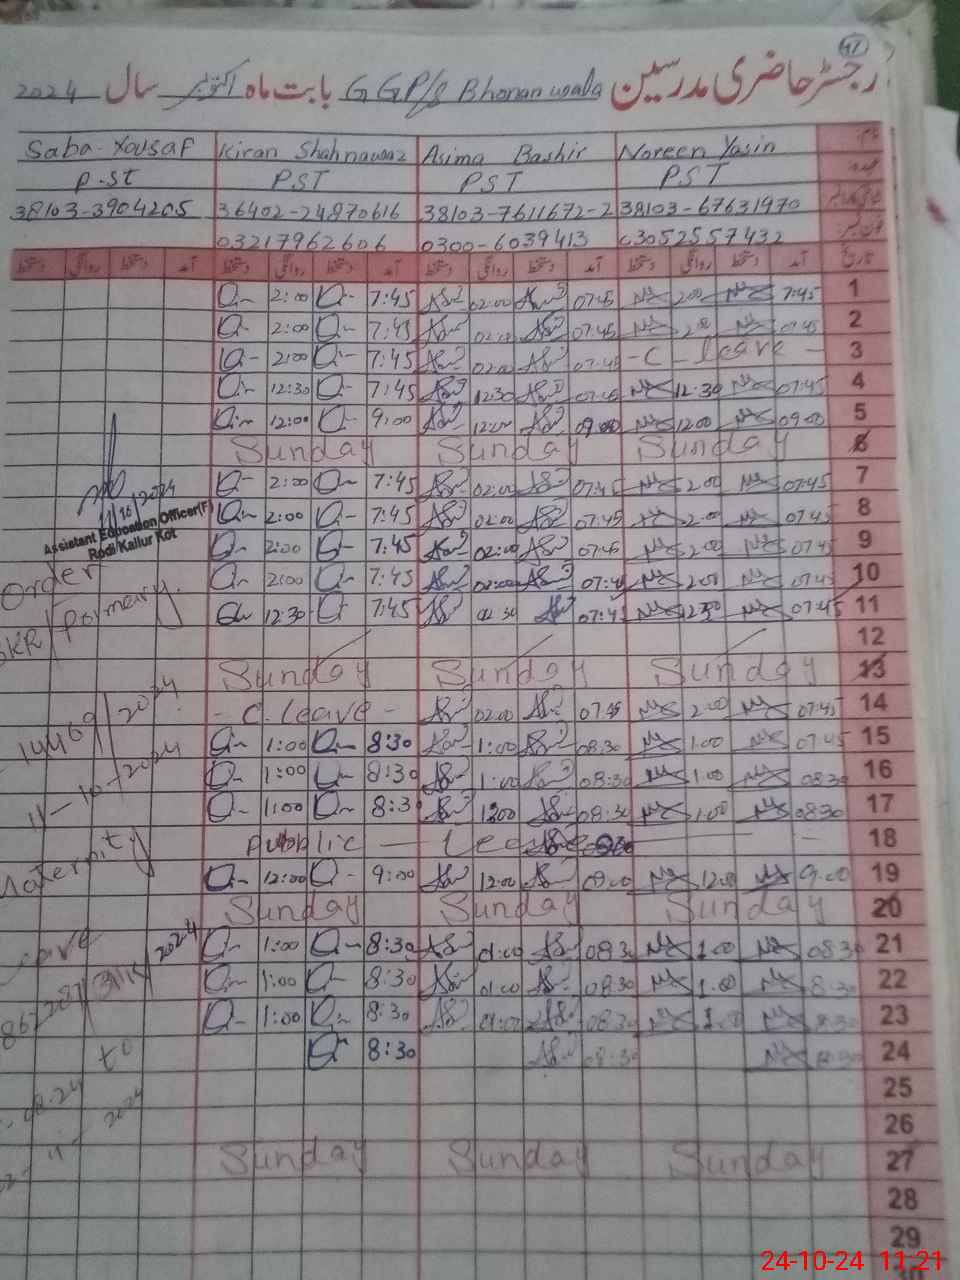 41
رجسٹر حاضری مدرسین GGP/S Bhonanwala بابت ماہ اکتوبر سال 2024
نام Noreen Yasin Asima Bashir Kiran Shahnawaz Saba Yousaf
عہدہ PST PST PST P.ST
38103-67631970 38103-7611672-2 36402-24870616 38103-3904205
03052557432 0300-6039413 03217962606
تاریخ آمد دستخط روانگی دستخط آمد دستخط روانگی دستخط آمد دستخط روانگی دستخط آمد دستخط روانگی دستخط
1 7:45 2:00 07:45 02:00 7:45 2:00
2 07:45 2:00 07:45 02:00 7:45 2:00
3 - C - leave - 07:45 02:00 7:45 2:00
4 07:45 12:30 07:45 12:30 7:45 12:30
5 09:00 12:00 09:00 12:00 9:00 12:00
6 Sunday Sunday Sunday
7 07:45 2:00 07:45 02:00 7:45 2:00
8 07:45 2:00 07:45 02:00 7:45 2:00
9 07:45 2:00 07:45 02:00 7:45 2:00
10 07:45 2:00 07:45 02:00 7:45 2:00
11 07:45 12:30 07:45 02:30 7:45 12:30
12
13 Sunday Sunday Sunday
14 07:45 2:00 07:45 02:00 - C. leave -
15 07:45 1:00 08:30 1:00 8:30 1:00
16 08:30 1:00 08:30 1:00 8:30 1:00
17 08:30 1:00 08:30 8:30 1:00
18 Public —
19 9:00 12:00 09:00 12:00 9:00 12:00
20 Sunday Sunday Sunday
21 08:30 1:00 08:30 01:00 8:30 1:00
22 8:30 1:00 08:30 01:00 8:30 1:00
23 8:30 1:00 08:30 01:00 8:30 1:00
24 8:30 08:30 8:30
25
26
27 Sunday Sunday Sunday
28
29
11/10/2024
Assistant Education Officer(F)
Rodi/Kallur Kot
Order
BKR/Pormary.
14469/2024
11-10-2024
Maternity
Leave
to
24-10-24 11:21